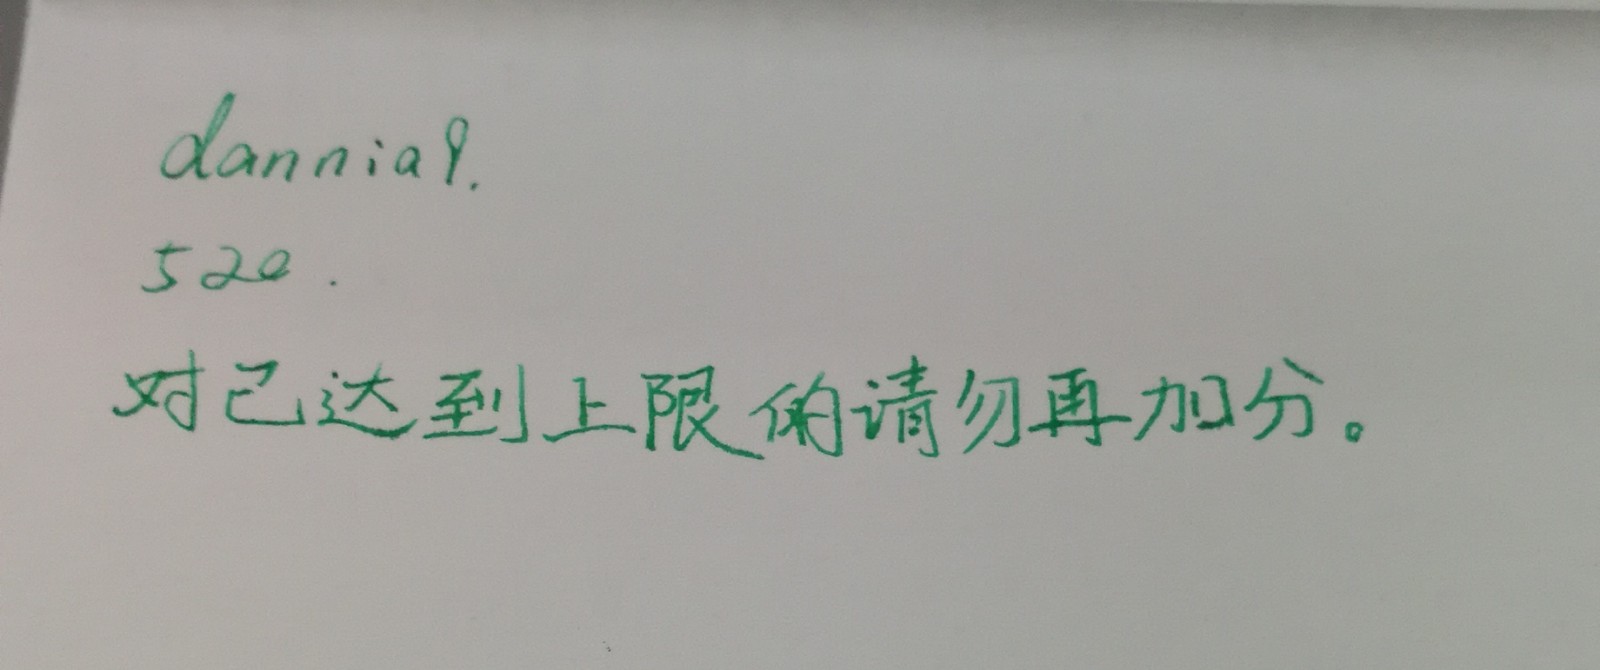 dannial.
520.
对已达到上限的请勿再加分。